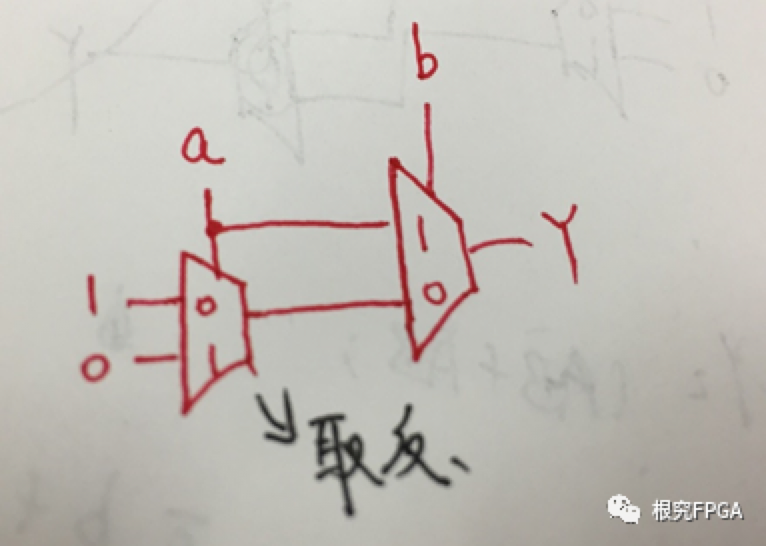 b
a
1
Y
1 0
0
0 1
取反、
根究FPGA